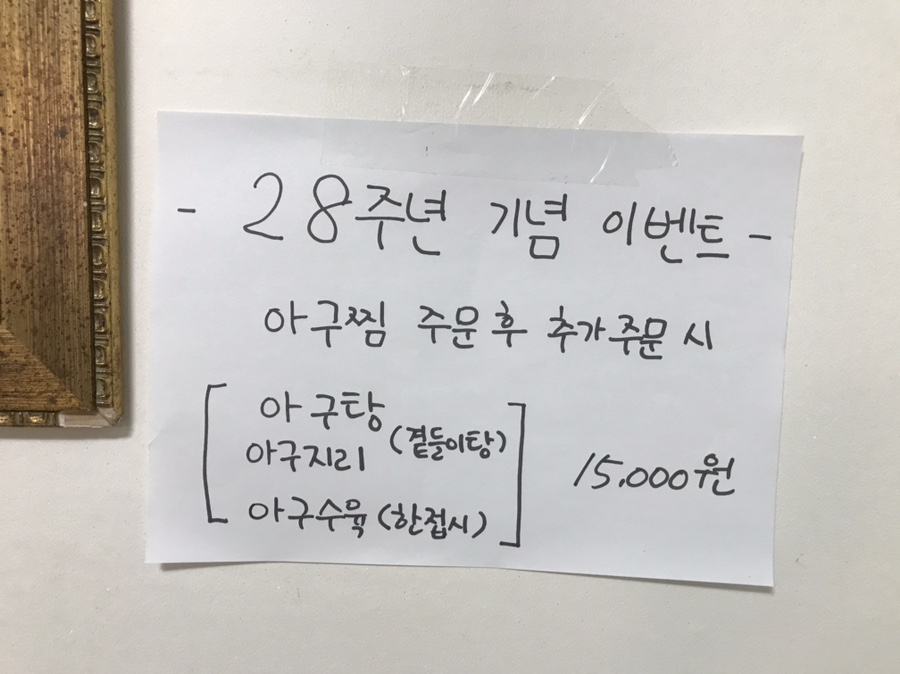 - 28주년 기념 이벤트 -
아구찜 주문 후 추가주문 시
아구탕
아구지리 (곁들이탕)
아구수육 (한접시)
15.000원